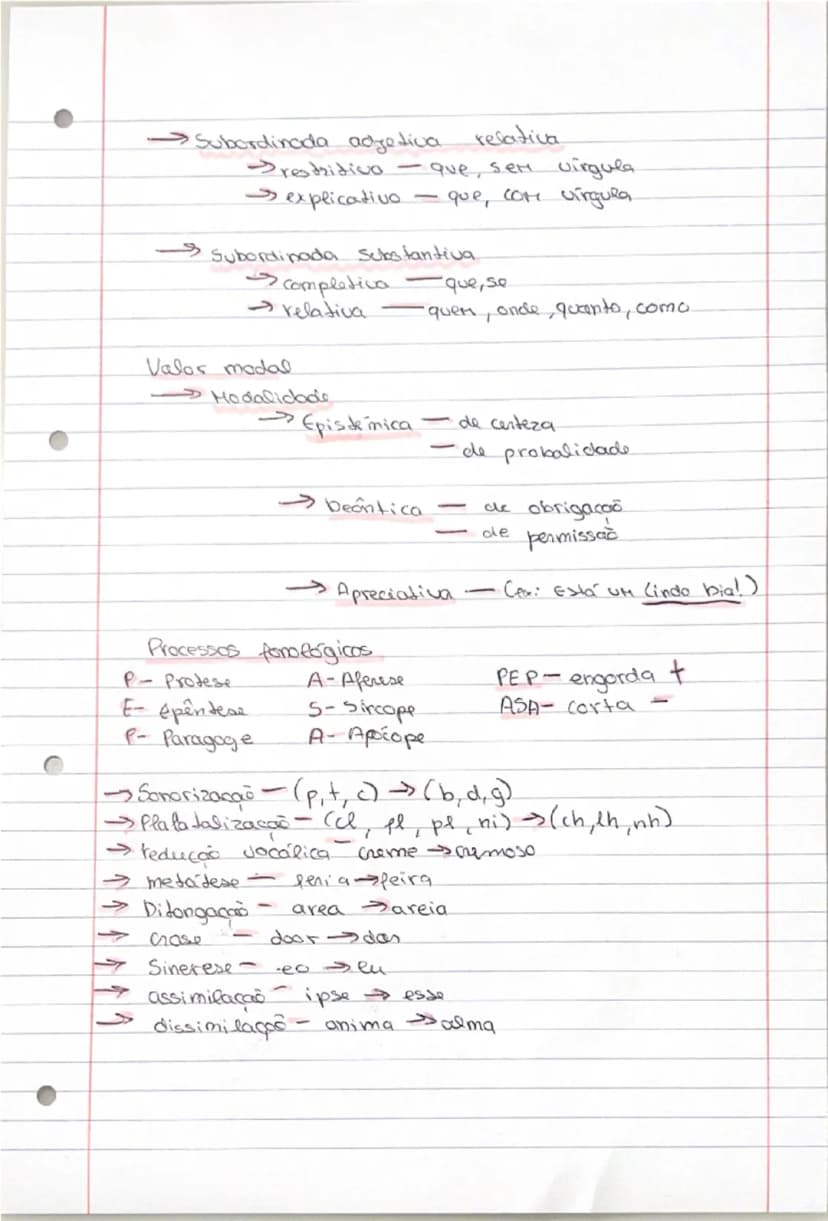 → Subordinada adjetiva relativa
→ restritivo — que, sem vírgula
→ explicativo — que, com vírgula
→ Subordinada Substantiva
→ completiva — que, se
→ relativa — quem, onde, quanto, como
Valor modal
→ Modalidade
→ Epistêmica — de certeza
— de probalidade
→ Deôntica — de obrigação
— de permissão
→ Apreciativa — (ex: Está um lindo Dia!)
Processos fonológicos
P- Protese A- Aferese PEP- engorda +
E- epêntese S- Sincope ASA- corta -
P- Paragoge A- Apócope
→ Sonorização - (p, t, c) → (b, d, g)
→ Plafatalização - (cl, fl, pl, ni) → (ch, lh, nh)
→ redução vocálica - creme → cremoso
→ metátese - feria → feira
→ Ditongação - area → areia
→ crase - door → dor
→ Sinerese - eo → eu
→ assimilação - ipse → esse
→ dissimilação - anima → alma